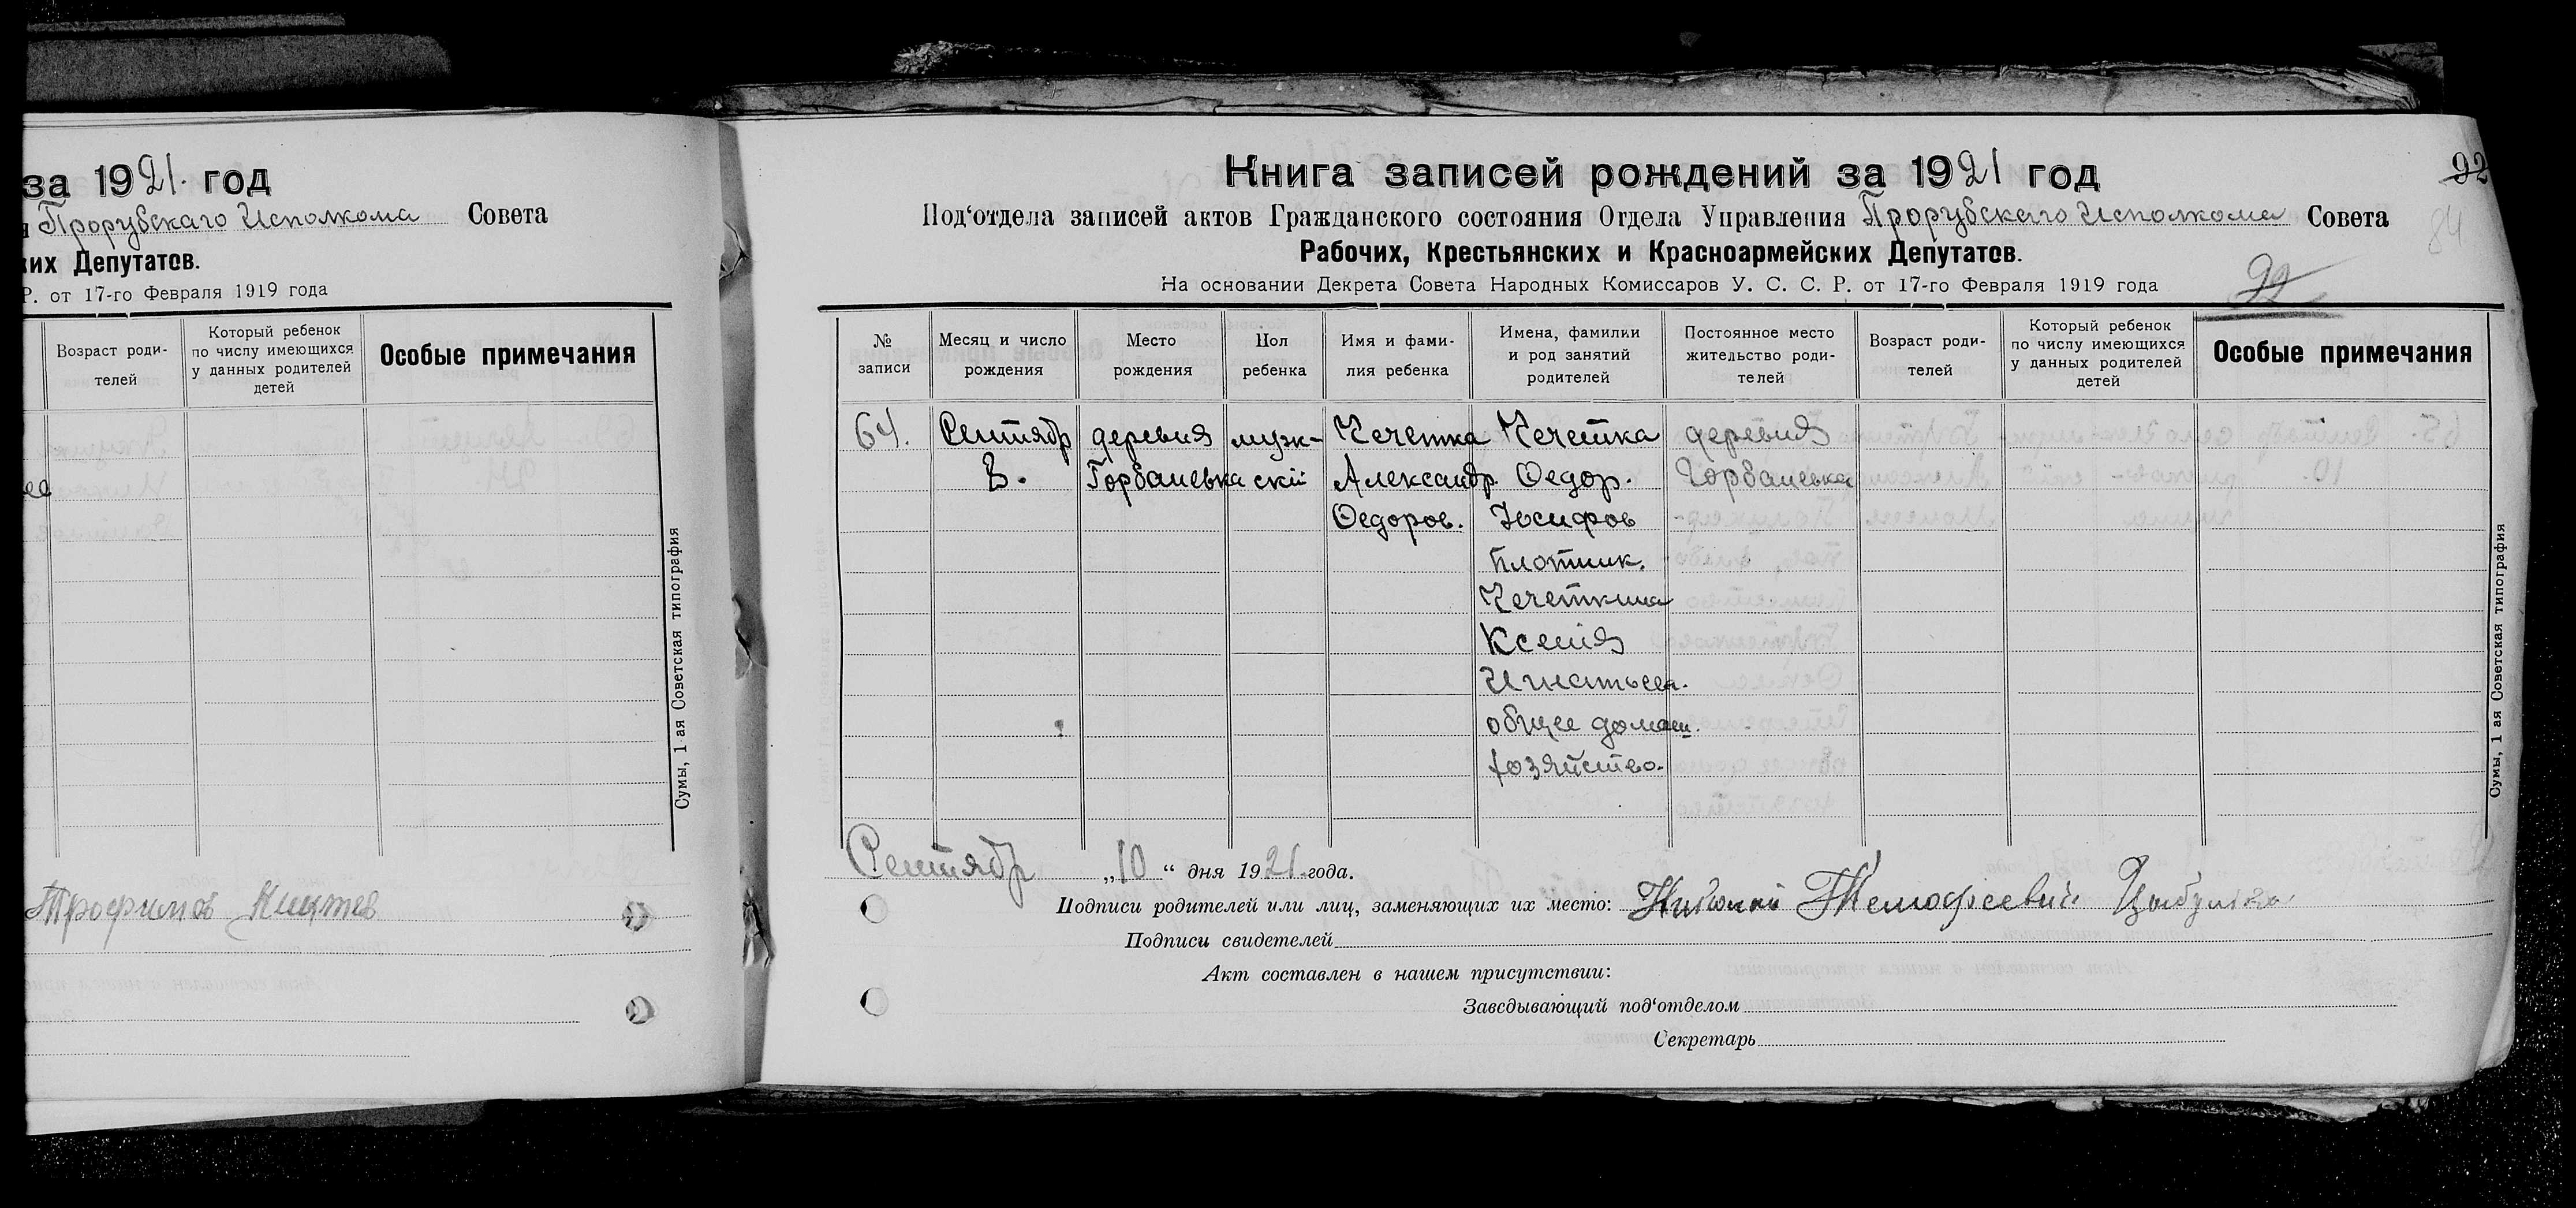 за 1921. год
Прорубскаго Исполкома Совета
ких Депутатов.
Р. от 17-го Февраля 1919 года
Возраст роди-
телей
Который ребенок
по числу имеющихся
у данных родителей
детей
Особые примечания
Сумы, 1-ая Советская типография
Трофимов
Книга записей рождений за 1921 год
92
Под‘отдела записей актов Гражданского состояния Отдела Управления Прорубскаго Исполкома Совета
84
Рабочих, Крестьянских и Красноармейских Депутатов.
На основании Декрета Совета Народных Комиссаров У. С. С. Р. от 17-го Февраля 1919 года
№
записи
Месяц и число
рождения
Место
рождения
Пол
ребенка
Имя и фами-
лия ребенка
Имена, фамилии
и род занятий
родителей
Постоянное место
жительство роди-
телей
Возраст роди-
телей
Который ребенок
по числу имеющихся
у данных родителей
детей
Особые примечания
64.
Сентябр
деревня
Горбаневка
муж-
скій
Чечетка
Александр.
Ѳедоров.
Чечетка
Ѳедор.
Іосифов
плотник.
Чечеткина
Ксенія
Игнатьев.
общее домаш.
хозяйство.
деревня
Горбаневка
Сумы, 1 ая Советская типография
Сентябр „10“ дня 1921 года.
Подписи родителей или лиц, заменяющих их место: Николай Тимофеевич Цыбулька
Подписи свидетелей
Акт составлен в нашем присутствии:
Заведывающий под‘отделом
Секретарь